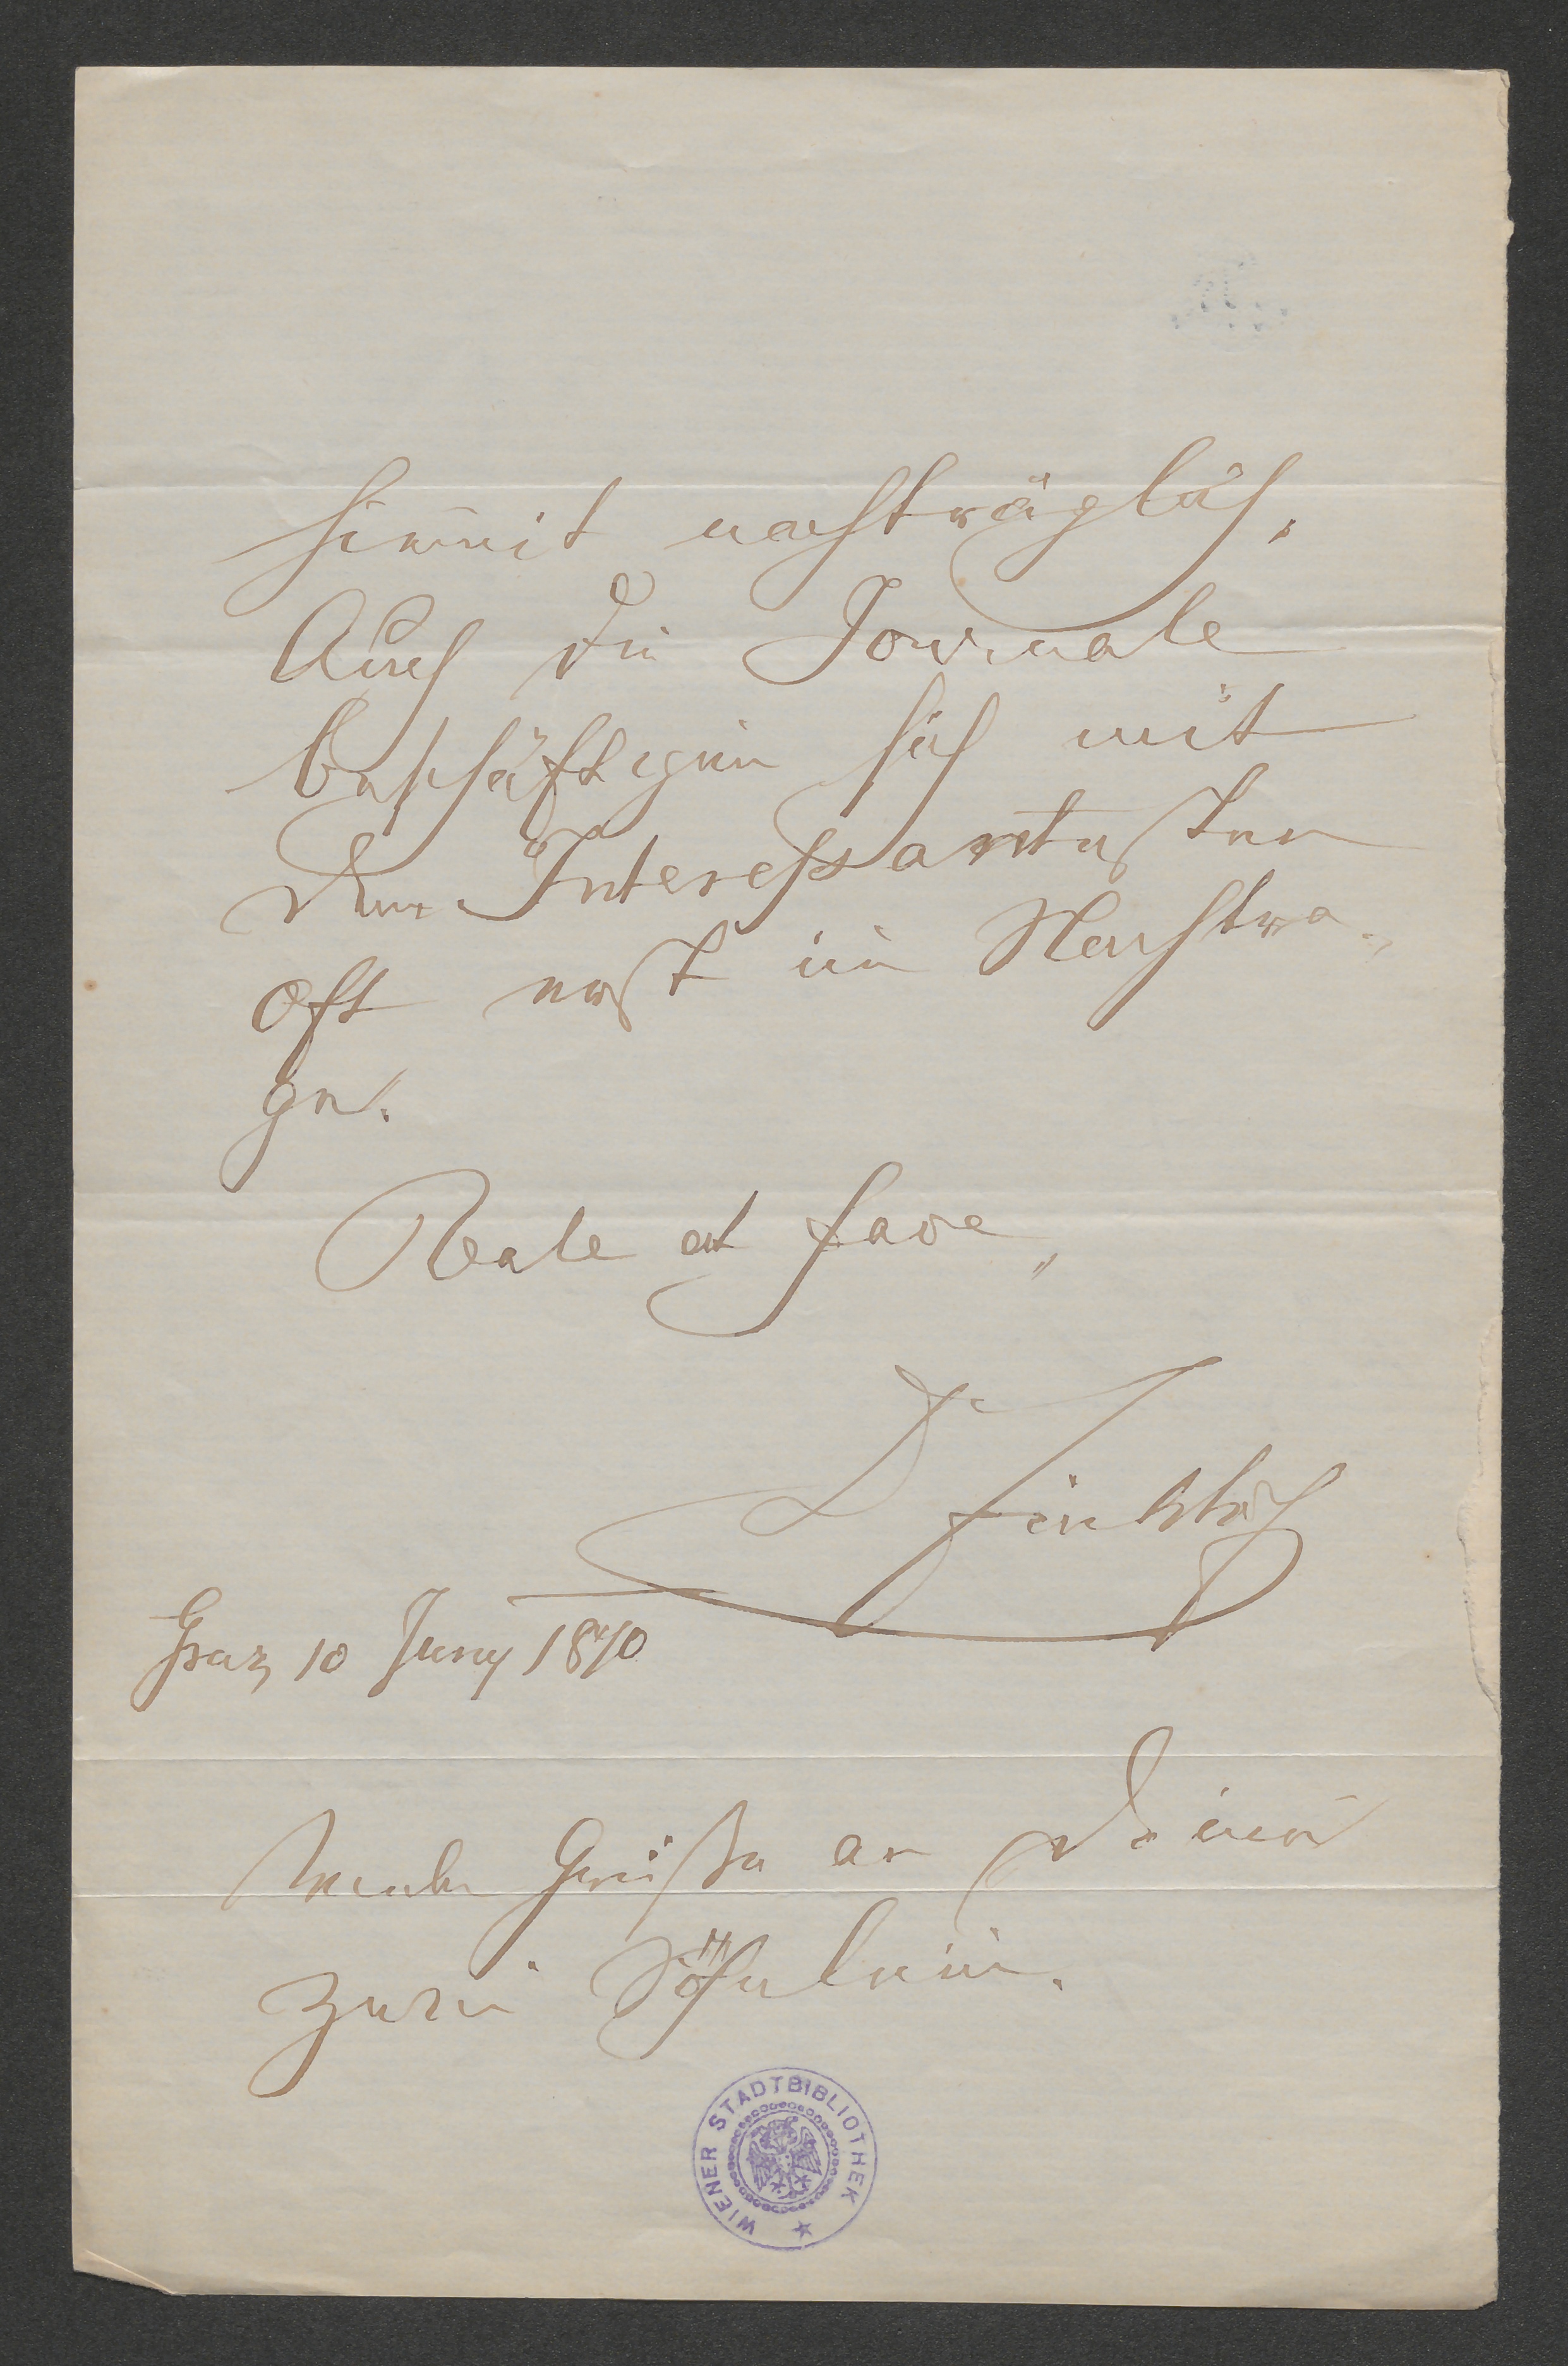 hiemit nachträglich.
Auch die Journale
beschäftigen sich mit
dem Interessantesten
oft erst im Nachtra„
ge.
Vale et fave„
Dr
Graz, 10 Juny 1870
Grüße an Deine
zwei Söhnlein.
WIENER STADTBIBLIOTHEK